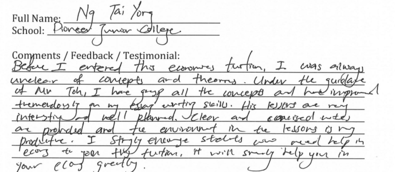 Full Name: Ng Tai Yong
School: Pioneer Junior College
Comments / Feedback / Testimonial:
Before I entered this economics tuition, I was always
unclear of concepts and theories. Under the guidance
of Mr Toh, I have grasp all the concepts and had improved
tremendously on my essay writing skills. His lessons are very
interesting and well planned. Clear and concised notes
are provided and the environment in the lessons is very
productive. I strongly encourage students who need help in
econs to join this tuition, it will surely help you in
your econs greatly.